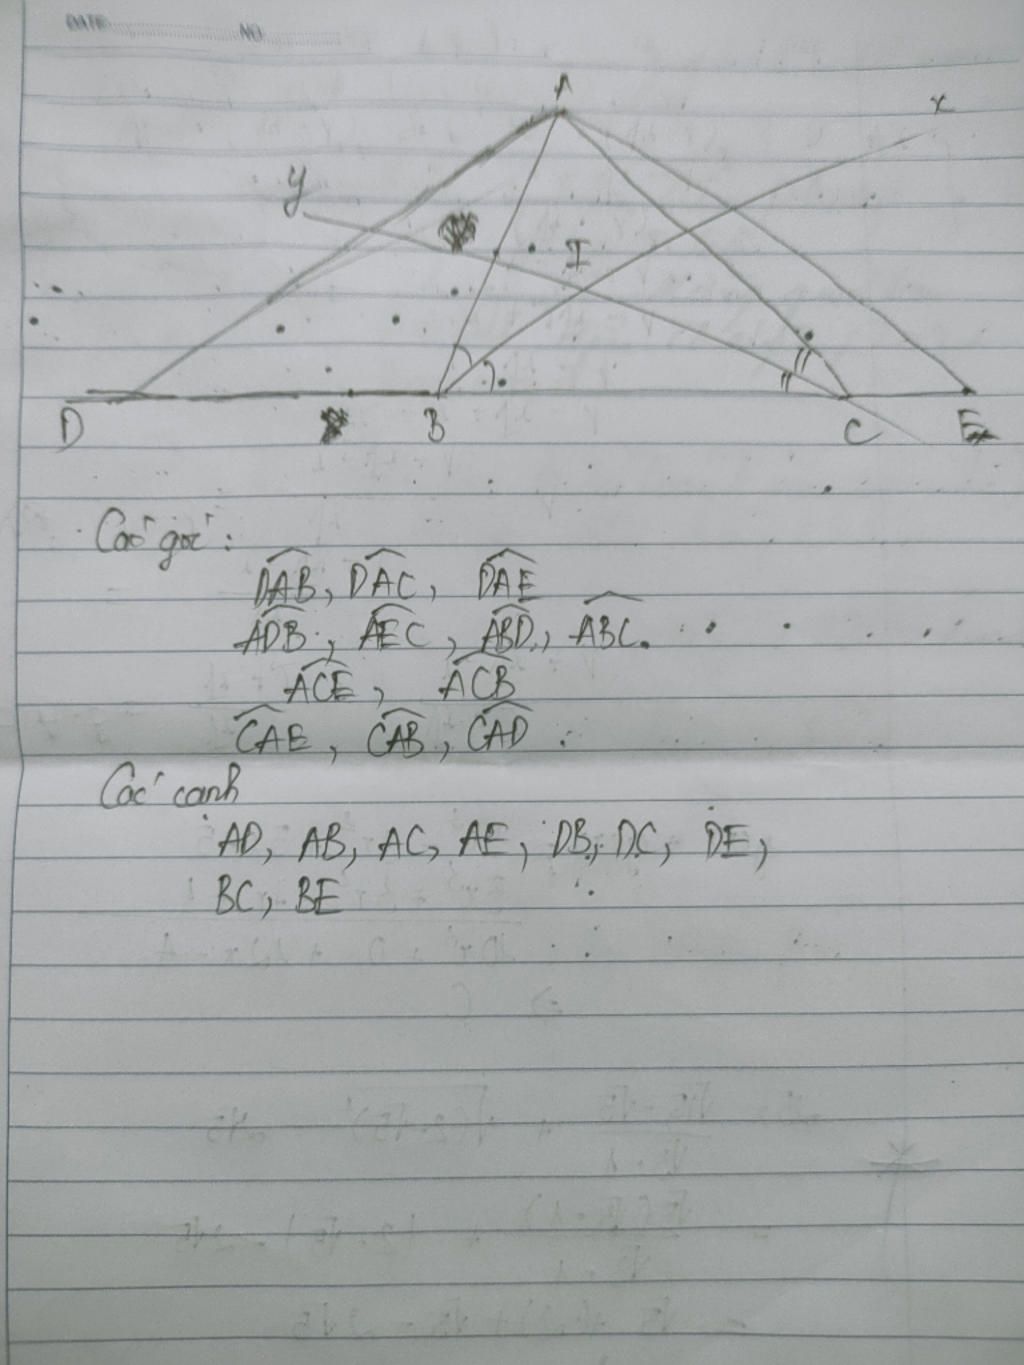 DATE NO
A
x
y
I
D B C E
Các góc:
DAB, DAC, DAE
ADB, AEC, ABD, ABC.
ACE, ACB
CAE, CAB, CAD.
Các cạnh
AD, AB, AC, AE, DB, DC, DE,
BC, BE